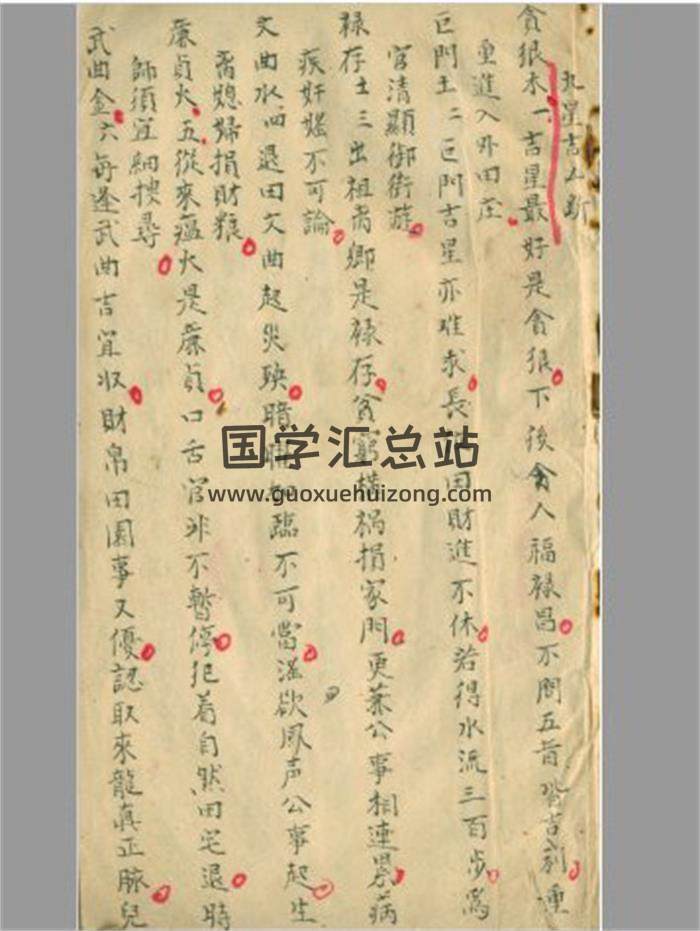 九星吉凶断
貪狼木一吉星最好是貪狼下後貪人福禄昌不问五音皆吉利重
重進入外田庄
巨門土二巨門吉星亦难求長田財進不休若得水流三百步爲
官清顯御街遊
禄存土三出祖离鄉是禄存贫窮横禍損家門更兼公事相連累病
疾奸媱不可論
文曲水四退田文曲起災殃臨不可當滛欲風声公事起生
离媳婦損財粮
廉貞火五從來瘟火是廉貞口舌官非不暫停犯着自然田宅退時
師須宜細搜尋
武曲金六每逢武曲吉宜收財帛田園事又優認取來龍真正脉兒
国学汇总站
www.guoxuehuizong.com